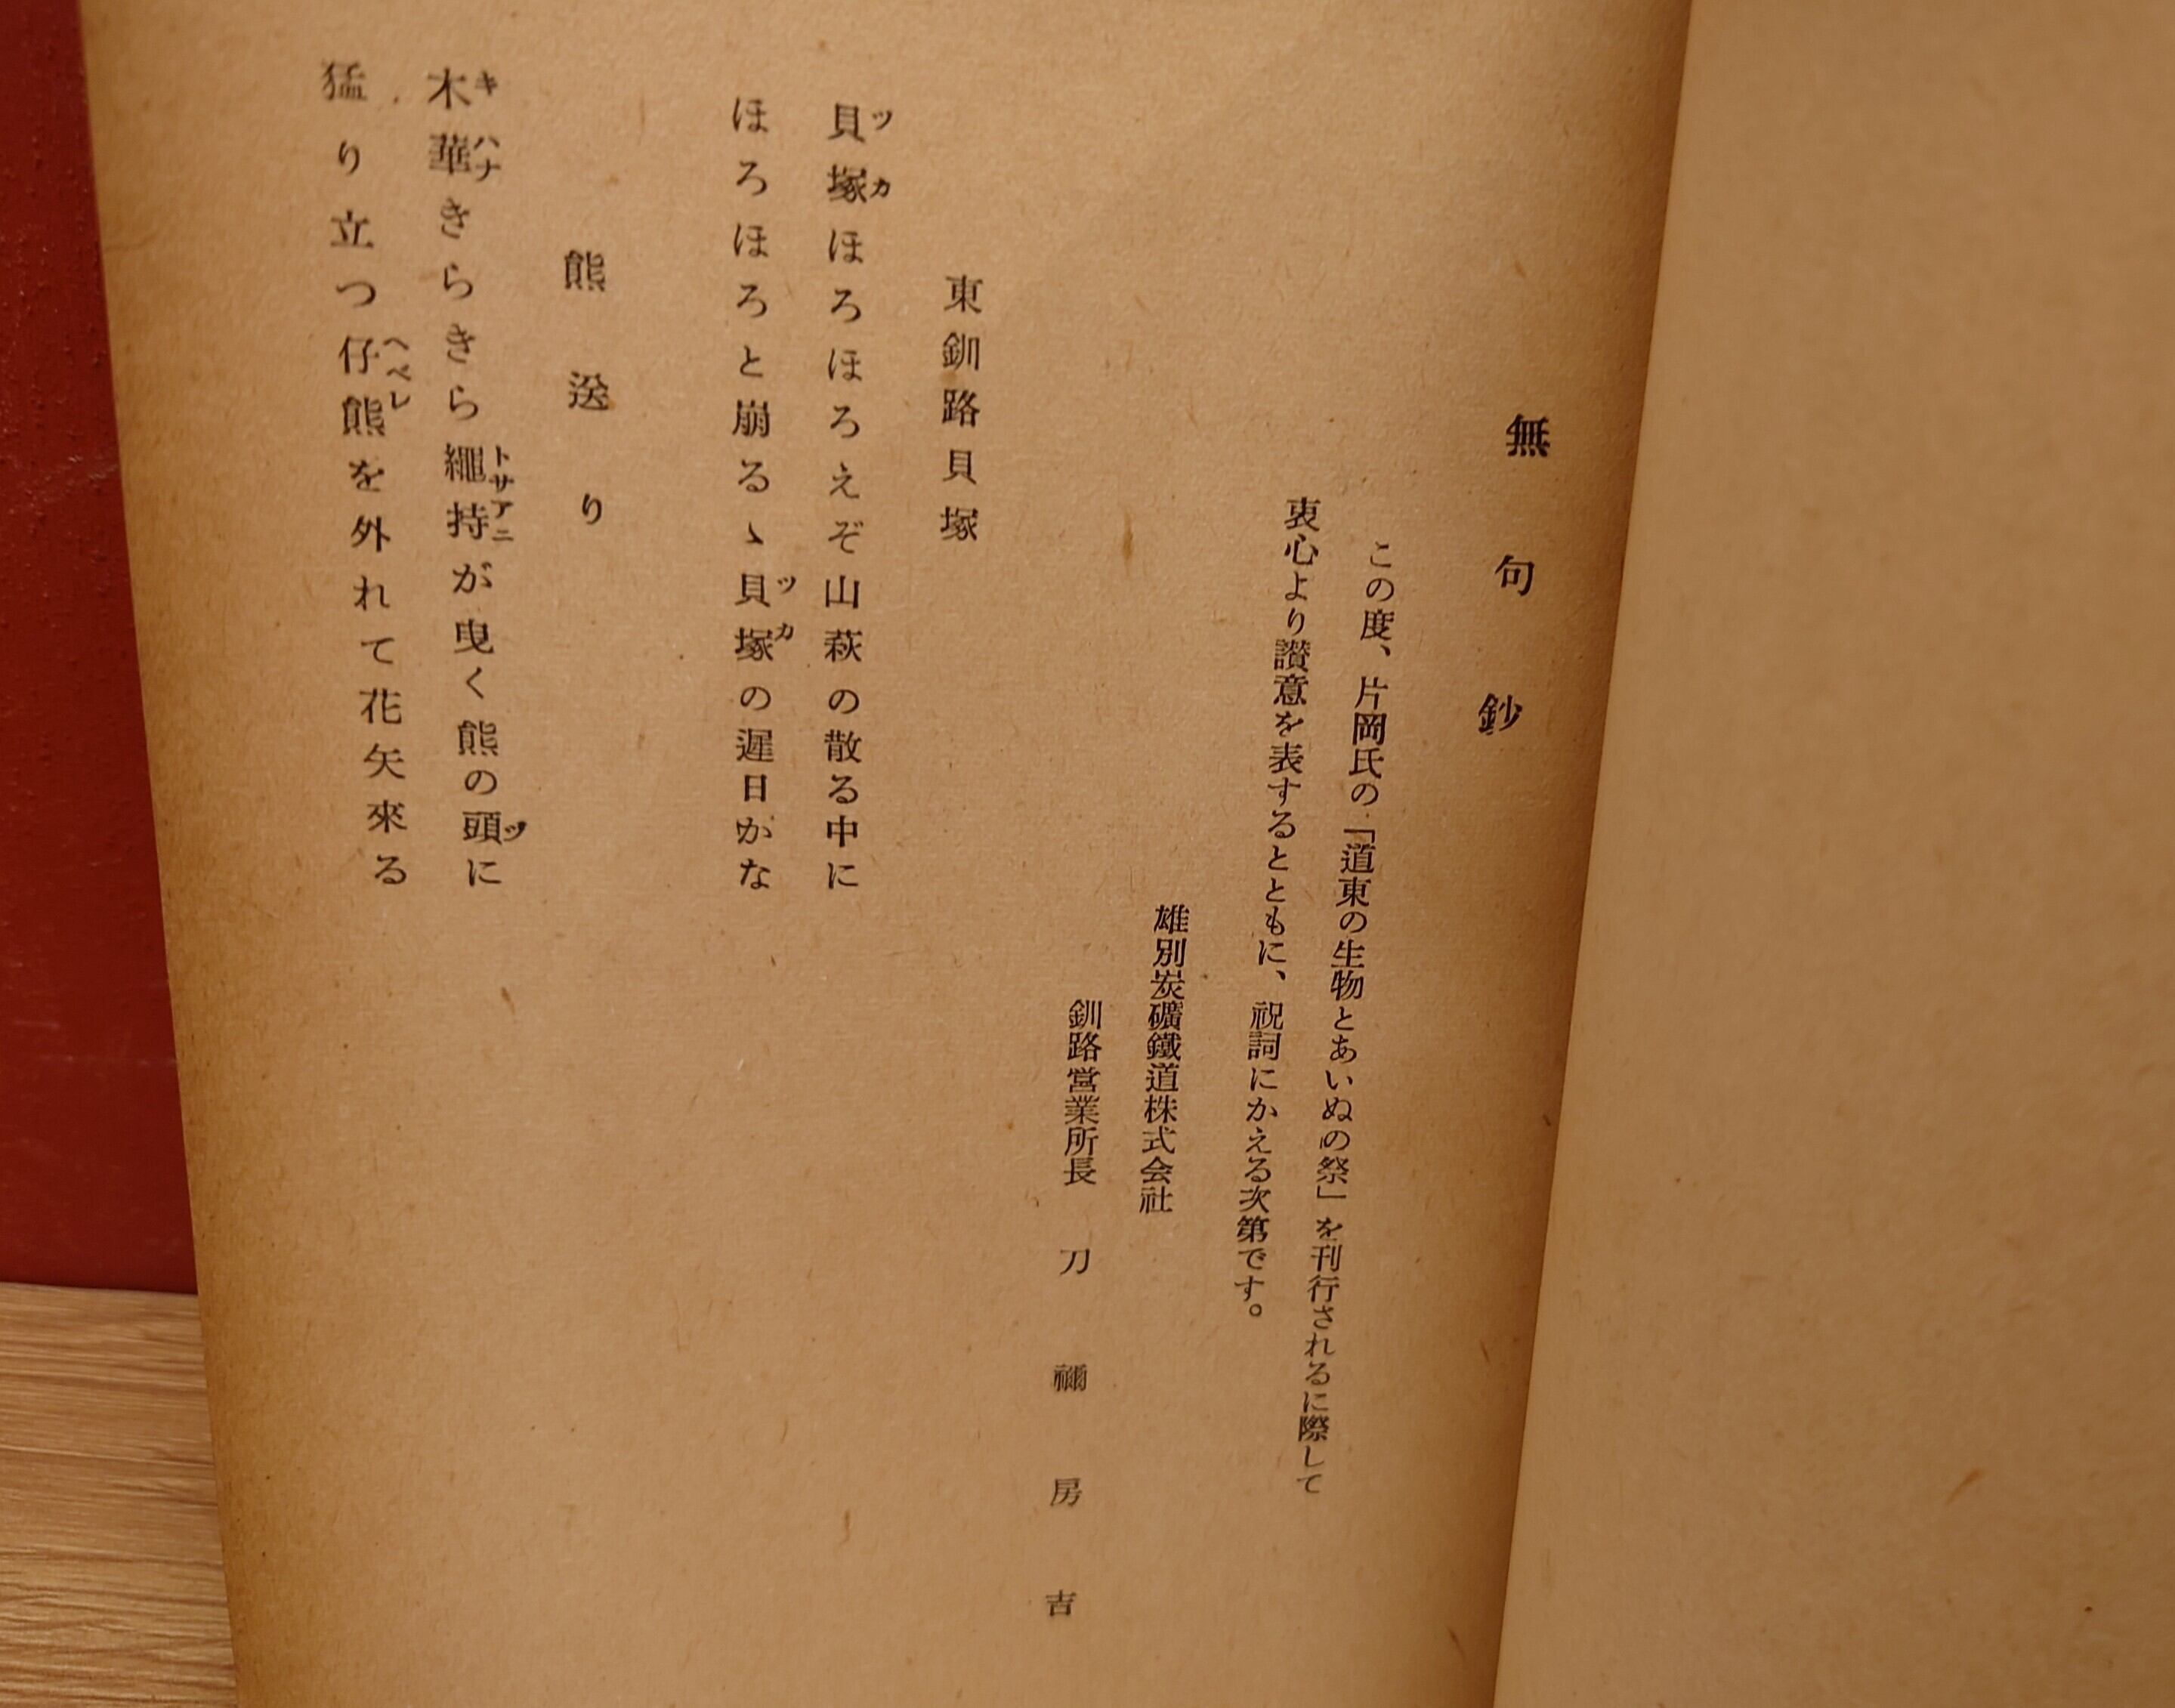 無句鈔
この度、片岡氏の「道東の生物とあいぬの祭」を刊行されるに際して
衷心より讃意を表するとともに、祝詞にかえる次第です。
雄別炭礦鐵道株式会社
釧路営業所長 刀禰房吉
東釧路貝塚
貝塚ほろほろえぞ山萩の散る中に
ツカ
ほろほろと崩るゝ貝塚の遅日かな
ツカ
熊送り
木華きらきら繩持が曳く熊の頭に
キハナ トサアニ ツ
猛り立つ仔熊を外れて花矢來る
ヘペレ